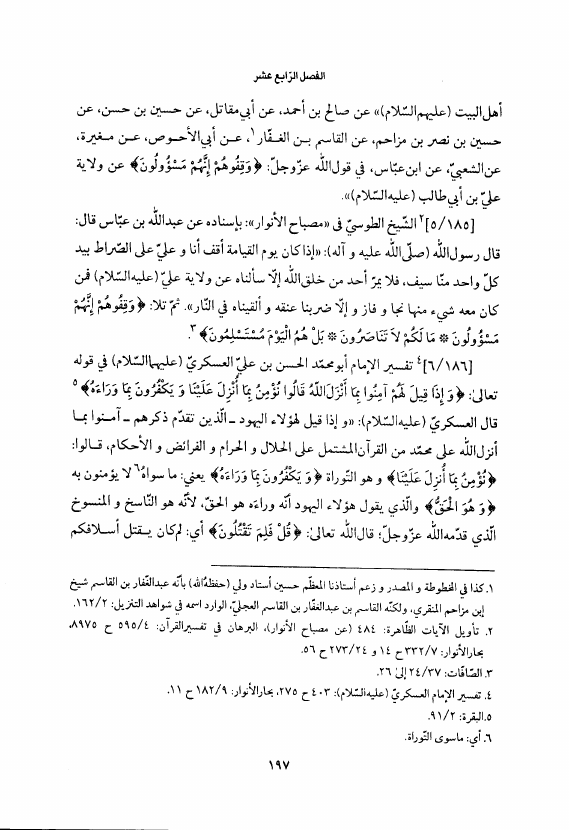 الفصل الرّابع عشر
أهل‌البيت (عليهم‌السّلام)» عن صالح بن أحمد، عن أبي‌مقاتل، عن حسين بن حسن، عن
حسين بن نصر بن مزاحم، عن القاسم بـن الغـفّار١، عـن أبي‌الأحـوص، عـن مـغيرة،
عن‌الشعبيّ، عن ابن‌عبّاس، في قول‌الله عزّوجلّ: ﴿وَقِفُوهُمْ إِنَّهُمْ مَسْؤُولُونَ﴾ عن ولاية
عليّ بن أبي‌طالب (عليه‌السّلام)».
[٥/١٨٥]٢ الشّيخ الطوسيّ في «مصباح الأنوار»: بإسناده عن عبدالله بن عبّاس قال:
قال رسول‌الله (صلّى‌الله عليه و آله): «إذا كان يوم القيامة أقف أنا و عليّ على الصّراط بيد
كلّ واحد منّا سيف، فلا يمرّ أحد من خلق‌الله إلّا سألناه عن ولاية عليّ (عليه‌السّلام) فمن
كان معه شيء منها نجا و فاز و إلّا ضربنا عنقه و ألقيناه في النّار». ثمّ تلا: ﴿وَقِفُوهُمْ إِنَّهُمْ
مَسْؤُولُونَ * مَا لَكُمْ لاَ تَنَاصَرُونَ * بَلْ هُمُ الْيَوْمَ مُسْتَسْلِمُونَ﴾٣.
[٦/١٨٦]٤ تفسير الإمام أبو محمّد الحسن بن عليّ العسكري (عليهماالسّلام) في قوله
تعالى: ﴿وَ إِذَا قِيلَ لَهُمْ آمِنُوا بِمَا أَنْزَلَ‌اللهُ قَالُوا نُؤْمِنُ بِمَا أُنْزِلَ عَلَيْنَا وَ يَكْفُرُونَ بِمَا وَرَاءَهُ﴾٥
قال العسكريّ (عليه‌السّلام): «و إذا قيل لهؤلاء اليهود ـ الّذين تقدّم ذكرهم ـ آمـنوا بمـا
أنزل‌الله على محمّد من القرآن‌المشتمل على الحلال و الحرام و الفرائض و الأحكام، قـالوا:
﴿نُؤْمِنُ بِمَا أُنزِلَ عَلَيْنَا﴾ و هو التّوراة ﴿وَ يَكْفُرُونَ بِمَا وَرَاءَهُ﴾ يعني: ما سواه٦ لا يؤمنون به
﴿وَ هُوَ الْحَقُّ﴾ والّذي يقول هؤلاء اليهود أنّه وراءه هو الحقّ، لأنّه هو النّاسخ و المنسوخ
الّذي قدّمه‌الله عزّوجلّ؛ قال‌الله تعالى: ﴿قُلْ فَلِمَ تَقْتُلُونَ﴾ أي: لم‌كان يـقتل أسـلافكم
١. كذا في المخطوطة و المصدر و زعم أستاذنا المعظّم حسين أستاد ولي (حفظه‌الله) بأنّه عبدالغفّار بن القاسم شيخ
إبن مزاحم المنقري، ولكنّه القاسم بن عبدالغفّار بن القاسم العجليّ، الوارد اسمه في شواهد التنزيل: ١٦٢/٢.
٢. تأويل الآيات الظّاهرة: ٤٨٤ (عن مصباح الأنوار)، البرهان في تفسيرالقرآن: ٥٩٥/٤ ح ٨٩٧٥،
بحارالأنوار: ٣٣٢/٧ ح ١٤ و ٢٧٣/٢٤ ح ٥٦.
٣. الصّافات: ٢٤/٣٧ إلى ٢٦.
٤. تفسير الإمام العسكريّ (عليه‌السّلام): ٤٠٣ ح ٢٧٥، بحارالأنوار: ١٨٢/٩ ح ١١.
٥. البقرة: ٩١/٢.
٦. أي: ماسوى التّوراة.
١٩٧